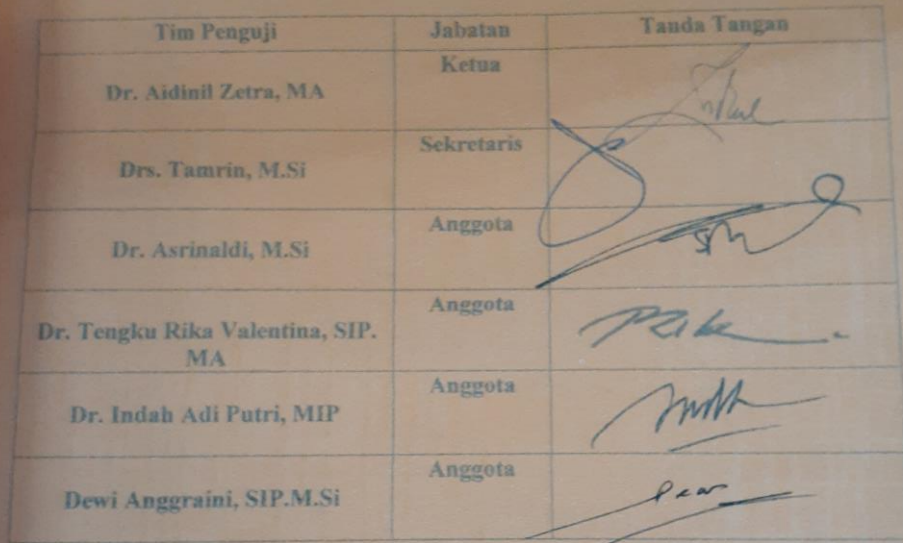 Tim Penguji Jabatan Tanda Tangan
Dr. Aidinil Zetra, MA Ketua
Drs. Tamrin, M.Si Sekretaris
Dr. Asrinaldi, M.Si Anggota
Dr. Tengku Rika Valentina, SIP. Anggota
MA
Dr. Indah Adi Putri, MIP Anggota
Dewi Anggraini, SIP.M.Si Anggota